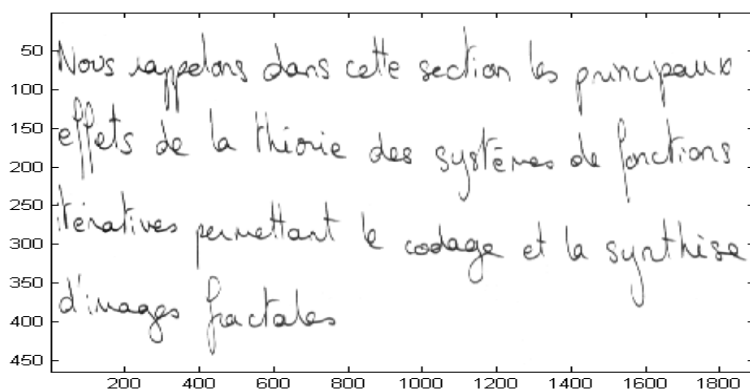 50
100
150
200
250
300
350
400
450
Nous rappelons dans cette section les principaux
effets de la théorie des systèmes de fonctions
itératives permettant le codage et la synthèse
d'images fractales
200 400 600 800 1000 1200 1400 1600 1800